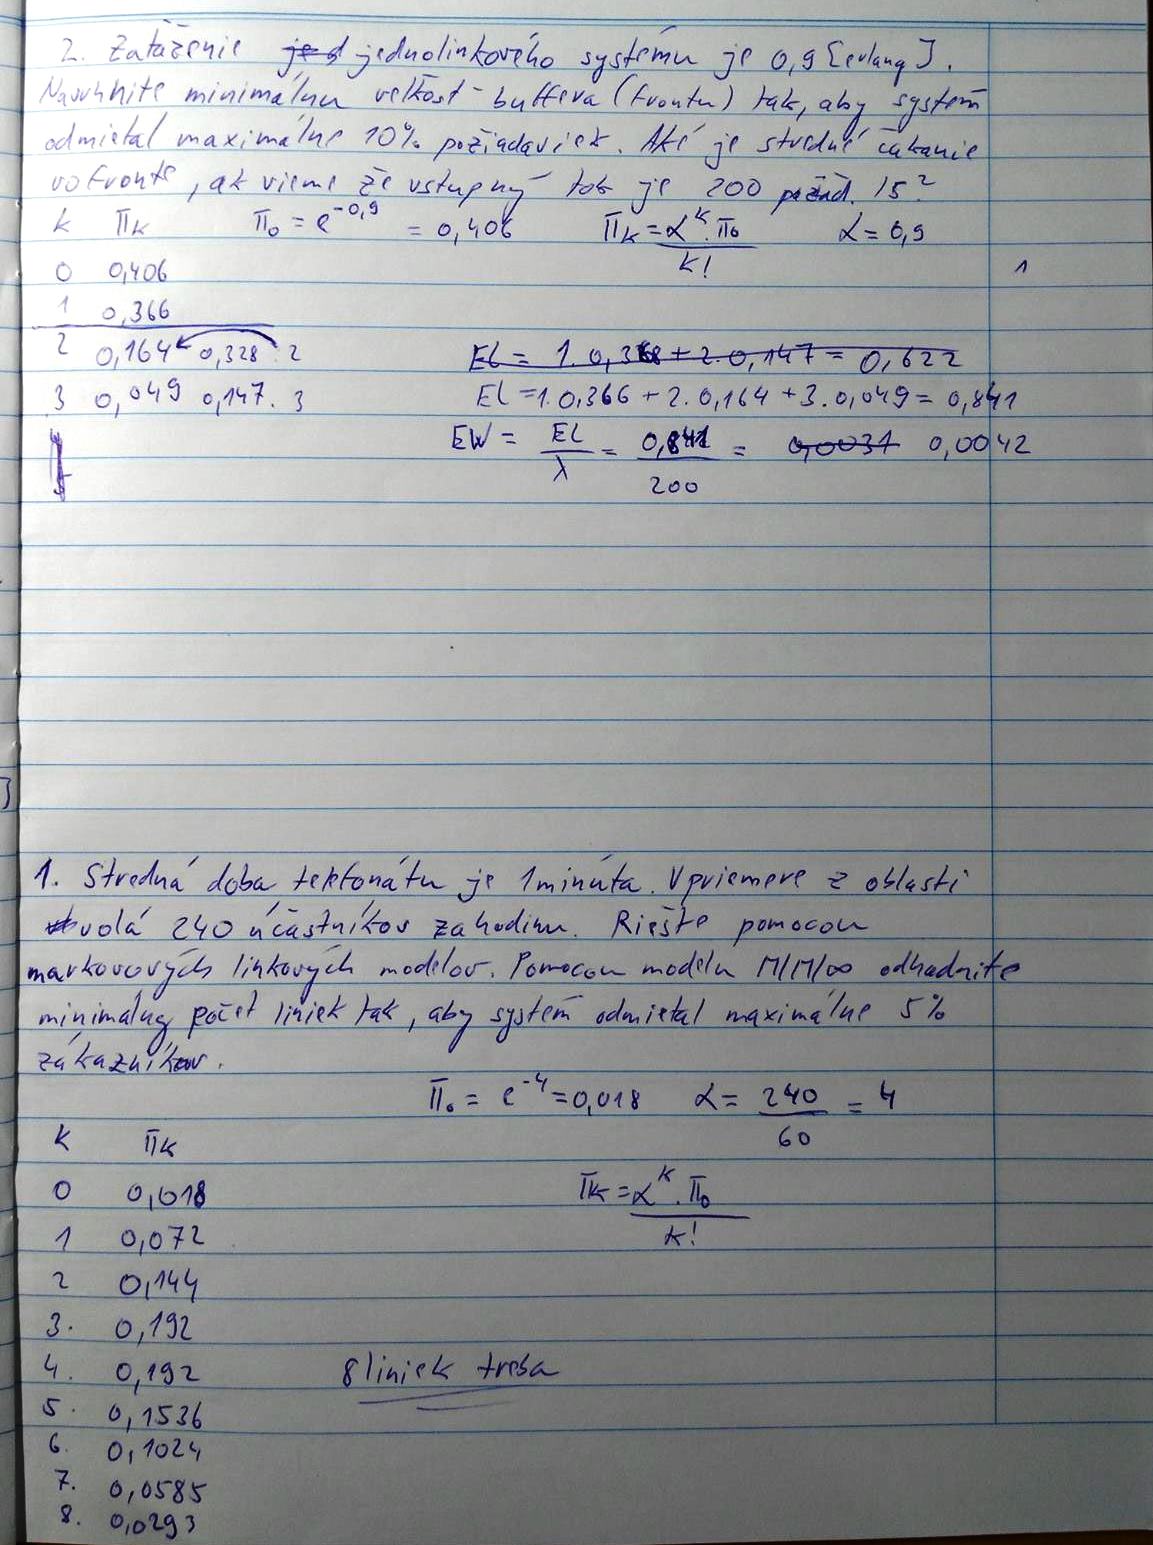 2. Zaťaženie jednolinkového systému je 0,9 [erlang].
Navrhnite minimálnu veľkosť buffera (frontu) tak, aby systém
odmietal maximálne 10% požiadaviek. Aké je stredné čakanie
vo fronte, ak vieme že vstupný tok je 200 požiad. /s?
k πk π0 = e^-0,9 = 0,406 πk = α^k . π0 / k! α = 0,9
0 0,406 1
1 0,366
2 0,164 0,328 : 2 EL = 1. 0,368 + 2. 0,147 = 0,622
3 0,049 0,147. 3 EL = 1.0,366 + 2. 0,164 + 3. 0,049 = 0,841
EW = EL / λ = 0,841 / 200 = 0,0031 0,0042
1. Stredná doba telefonátu je 1 minúta. V priemere z oblasti
volá 240 účastníkov za hodinu. Riešte pomocou
markovových linkových modelov. Pomocou modelu M/M/∞ odhadnite
minimálny počet liniek tak, aby systém odmietal maximálne 5%
zákazníkov.
π0 = e^-4 = 0,018 α = 240 / 60 = 4
k πk
0 0,018 πk = α^k . π0 / k!
1 0,072
2 0,144
3. 0,192
4. 0,192 8 liniek treba
5. 0,1536
6. 0,1024
7. 0,0585
8. 0,0293